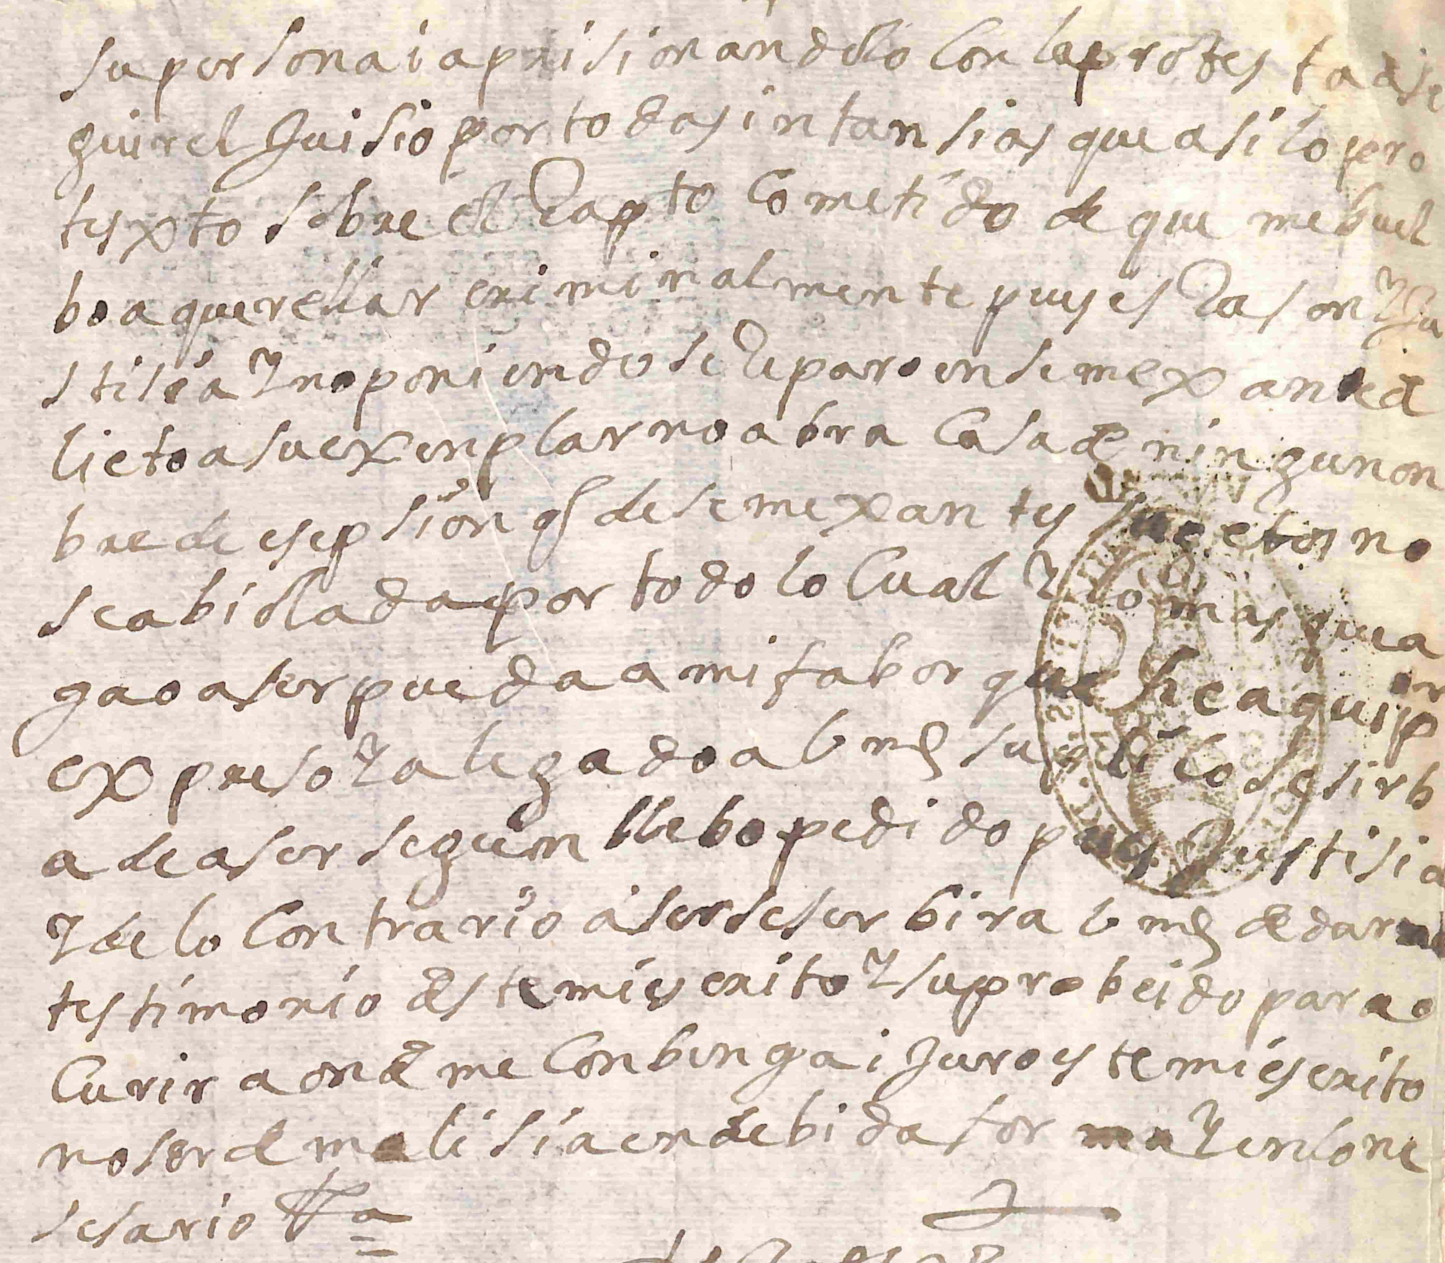 su persona i aprisionandolo Con la protesta de se
guir el Juisio por todas intansias que asi lo pro
texto sobre el Rapto Cometido de que me buel
bo a querellar criminalmente pues es Rason y Ju
stisia y no poniendose Reparo en semexante de
lieto a su exenplar no abra Casa de ningun on
bre de esepsion q de semexantes sugetos no
sea biolada por todo lo Cual y lo mas que a
ga o aser pueda a mi fabor que he aqui por
expreso y alegado a Vmd suplico se sirb
a de aser segun llebo pedido pues Justisia
y de lo Contrario aser se serbira Vmd de darme
testimonio deste mi escrito y su probeido para o
Curir a onde me Conbenga i Juro este mi escrito
no ser de malisia en debida forma y en lo ne
sesario Va